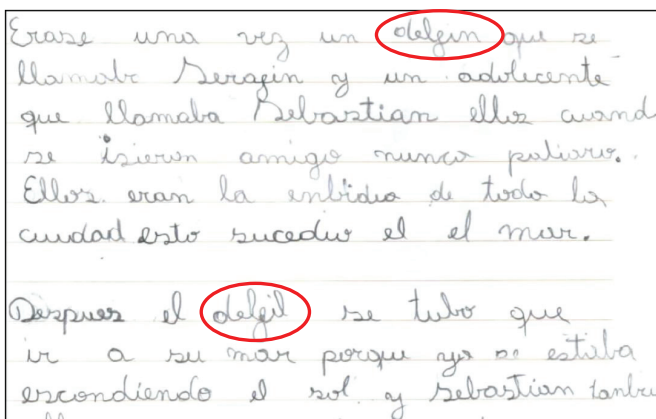 Erase una vez un delgin que se
llamabr Seragin y un adolicente
que llamaba Sebastian ellos cuand
se isieron amigo nunca peliaro.
Ellos eran la enbidia de todo la
ciudad esto sucedio el el mar.
Despues el delgil se tubo que
ir a su mar porque ya se estaba
escondiendo el sol y Sebastian tanbie